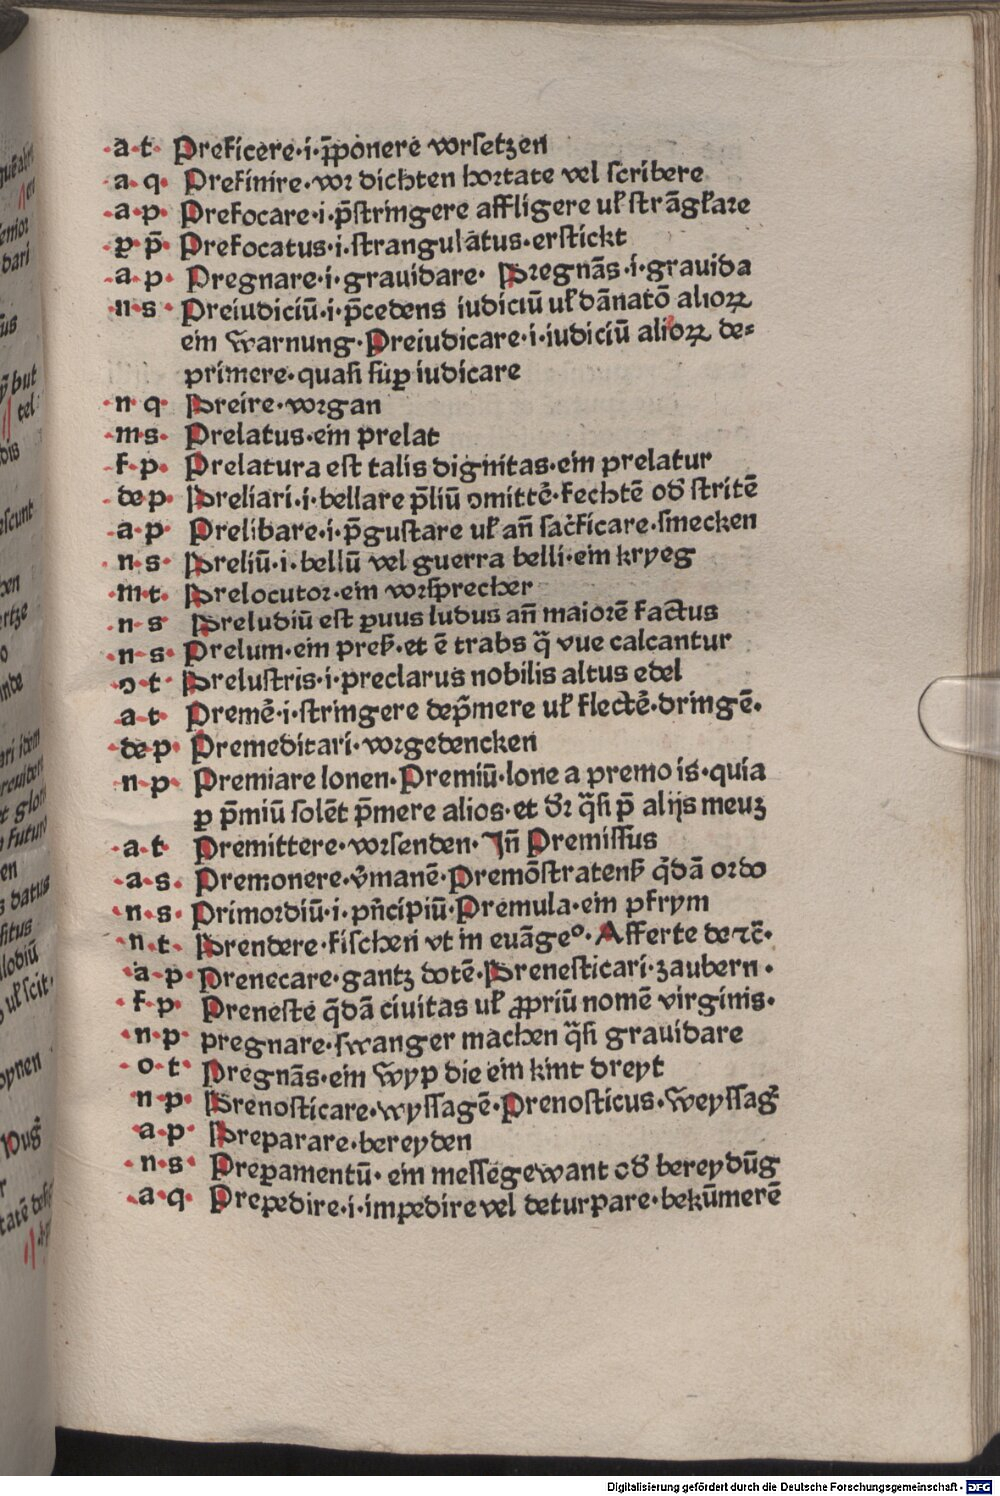 ·a·t· Preficere·i·p̄ponere vorsetzen
·a·q· Prefinire·vor dichten hortate vel scribere
·a·p· Prefocare·i·p̄stringere affligere uł strāgłare
·ꝑ·p̄· Prefocatus·i·strangulatus·erstickt
·a·p· Pregnare·i·grauidare· Pregnās·i·grauida
·n·s· Preiudiciū·i·p̄cedens iudiciū uł dānatō alioꝝ
ein warnung·Preiudicare·i·iudiciū alioꝝ de⸗
primere·quasi suꝑ iudicare
·n·q· Preire·vorgan
·m·s· Prelatus·ein prelat
·f·p· Prelatura est talis dignitas·ein prelatur
·de p· Preliari·i·bellare p̄liū ꝯmittē·fechtē od̄ stritē
·a·p· Prelibare·i·p̄gustare uł an̄ sac̄ficare·smecken
·n·s· Preliū·i·bellū vel guerra belli·ein kryeg
·m·t· Prelocutor·ein vorsprecher
·n·s· Preludiū est ꝑuus ludus an̄ maiorē factus
·n·s· Prelum·ein preß·et ē trabs q̄ vue calcantur
·ꝯ·t· Prelustris·i·preclarus nobilis altus edel
·a·t· Premē·i·stringere dep̄mere uł flectē·dringē·
·de p· Premeditari·vorgedencken
·n·p· Premiare lonen·Premiū·lone a premo is·quia
ꝑ p̄miū solēt p̄mere alios·et dr̄ q̄si p̄ alijs meuꝫ
·a·t· Premittere·vorsenden·Jn̄ Premissus
·a·s· Premonere·v̄manē·Premōstratenß q̄dā ordo
·n·s· Primordiū·i·pn̄cipiū·Premula·ein pfrym
·n·t· Prendere·fischen vt in euāgeº·Afferte de ⁊c̄·
·a·p· Prenecare·gantz dotē·Prenesticari·zaubern·
·f·p· Preneste q̄dā ciuitas uł ꝓpriū nomē virginis·
·n·p· pregnare·swanger machen q̄si grauidare
·o·t· Pregnās·ein wyp die ein kint dreyt
·n·p· Prenosticare·wyssagē·Prenosticus·weyssaḡ
·a·p· Preparare·bereyden
·n·s· Preꝑamentū·ein messegewant od̄ bereydūg
·a·q· Prepedire·i·impedire vel deturpare·bekūmerē
Digitalisierung gefördert durch die Deutsche Forschungsgemeinschaft - DFG